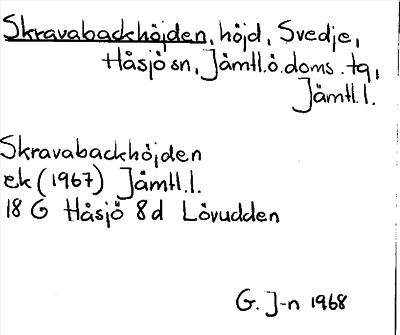 Skravabackhöjden, höjd, Svedje,
Håsjö sn, Jämtl.ö.doms.tg,
Jämtl.l.
Skravabackhöjden
ek (1967) Jämtl.l.
18 G Håsjö 8d Lövudden
G. J-n 1968